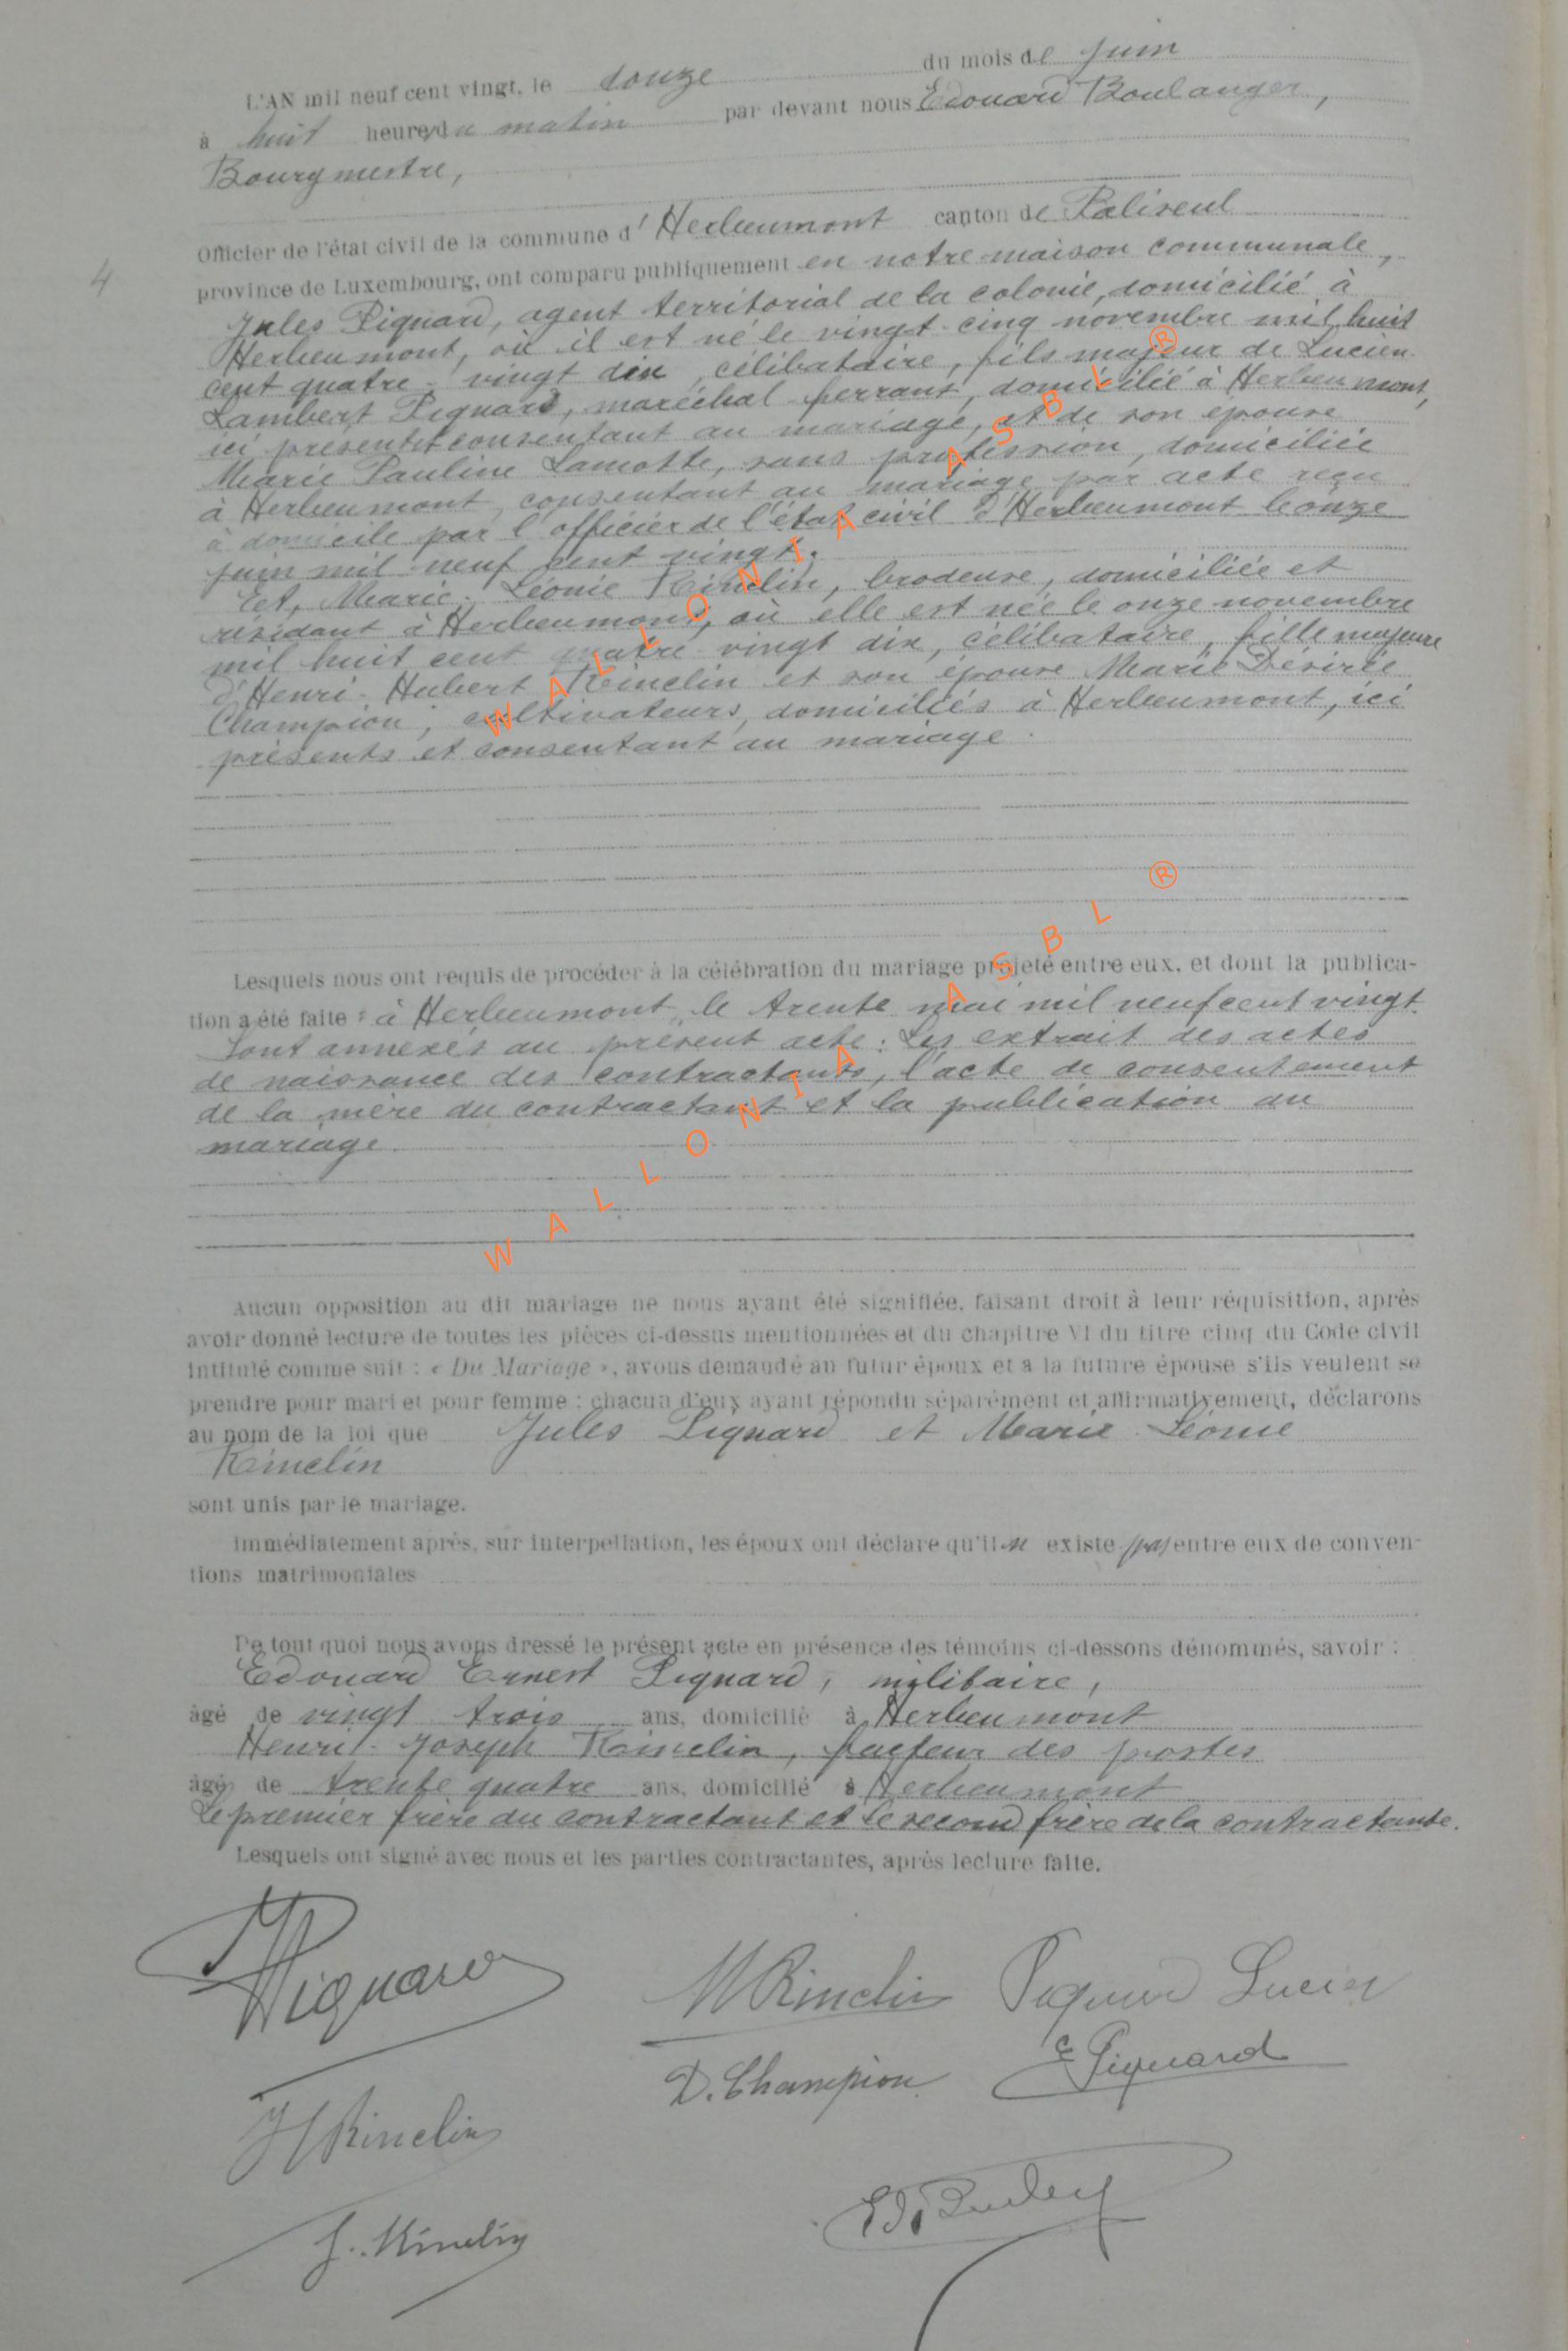 L'AN mil neuf cent vingt, le douze du mois de juin
à huit heures du matin par devant nous Edouard Boulanger,
Bourgmestre,
Officier de l'état civil de la commune d'Herbeumont canton de Paliseul
province de Luxembourg, ont comparu publiquement en notre maison communale,
4
Jules Piquard, agent territorial de la colonie, domicilié à
Herbeumont, où il est né le vingt-cinq novembre mil huit
cent quatre-vingt dix, célibataire, fils majeur de Lucien
Lambert Piquard, maréchal-ferrant, domicilié à Herbeumont,
ici présent et consentant au mariage, et de son épouse
Marie Pauline Lamotte, sans profession, domiciliée
à Herbeumont, consentant au mariage par acte reçu
à domicile par l'officier de l'état civil d'Herbeumont le onze
juin mil neuf cent vingt.
Et, Marie-Léonie Rinclin, brodeuse, domiciliée et
résidant à Herbeumont, où elle est née le onze novembre
mil huit cent quatre-vingt dix, célibataire, fille majeure
d'Henri-Hubert Rinclin et son épouse Marie Désirée
Champion, cultivateurs, domiciliés à Herbeumont, ici
présents et consentant au mariage.
Lesquels nous ont requis de procéder à la célébration du mariage projeté entre eux, et dont la publica-
tion a été faite : à Herbeumont, le trente mai mil neuf cent vingt.
Sont annexés au présent acte : Les extrait des actes
de naissance des contractants, l'acte de consentement
de la mère du contractant et la publication au
mariage.
Aucun opposition au dit mariage ne nous ayant été signifiée, faisant droit à leur réquisition, après
avoir donné lecture de toutes les pièces ci-dessus mentionnées et du chapitre VI du titre cinq du Code civil
intitulé comme suit : « Du Mariage », avons demandé au futur époux et a la future épouse s'ils veulent se
prendre pour mari et pour femme : chacun d'eux ayant répondu séparément et affirmativement, déclarons
au nom de la loi que Jules Piquard et Marie-Léonie
Rinclin
sont unis par le mariage.
Immédiatement après, sur interpellation, les époux ont déclare qu'il n'existe pas entre eux de conven-
tions matrimoniales
De tout quoi nous avons dressé le présent acte en présence des témoins ci-dessons dénommés, savoir :
Edouard Ernest Piquard, militaire,
âgé de vingt trois ans, domicilié à Herbeumont
Henri-Joseph Rinclin, facteur des postes
âgé de trente quatre ans, domicilié à Herbeumont
Le premier frère du contractant et le second frère de la contractante.
Lesquels ont signé avec nous et les parties contractantes, après lecture faite.
Piquard
M Rinclin Piquard Lucien
D. Champion E Piquard
H Rinclin
J. Rinclin
WALLONIA ASBL ®
WALLONIA ASBL ®